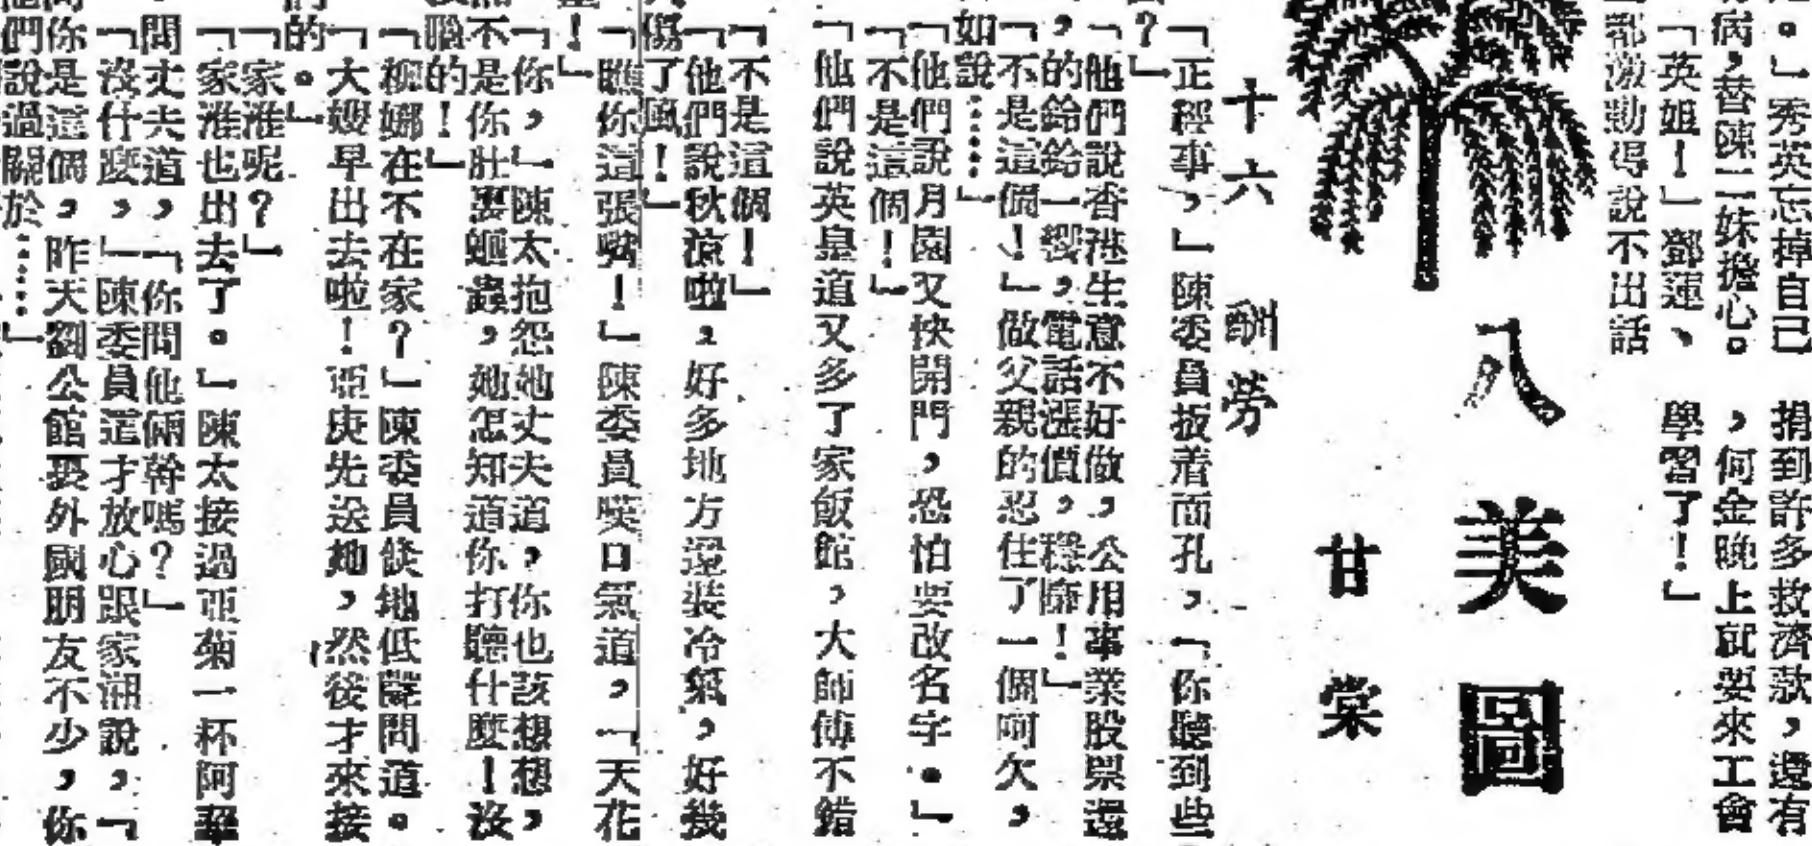 。」秀英忘掉自己
病，替陳二妹擔心。
「英姐！」鄧蓮、
都激動得說不出話
捐到許多救濟款，還有
，何金晚上就要來工會
學習了！」
八美圖
甘棠
十六　酬勞
「正經事，」陳委員扳着面孔，「你聽到些
？」
「他們說香港生意不好做，公用事業股票還
，的鈴鈴一響，電話漲價，穩賺！」
「不是這個！」做父親的忍住了一個呵欠，
如說……」
「他們說月園又快開門，恐怕要改名字。」
「不是這個！」
「他們說英皇道又多了家飯館，大師傅不錯
「不是這個！」
「他們說秋涼啦，好多地方還裝冷氣，好幾
傷了風！」
「瞧你這張嘴！」陳委員嘆口氣道，「天花
！」
「你，」陳太抱怨她丈夫道，你也該想想，
不是你肚裏蛔蟲，她怎知道你打聽什麼！沒
腦的！」
「樹娜在不在家？」陳委員倏地低聲問道。
「大嫂早出去啦！亞庚先送她，然後才來接
的。」
「家淮呢？」
「家淮也出去了。」陳太接過亞菊一杯阿華
問丈夫道，「你問他倆幹嗎？」
「沒什麼，」陳委員這才放心跟家湘說，「
你是這個，昨天劉公館裏外國朋友不少，你
們說過關於……」